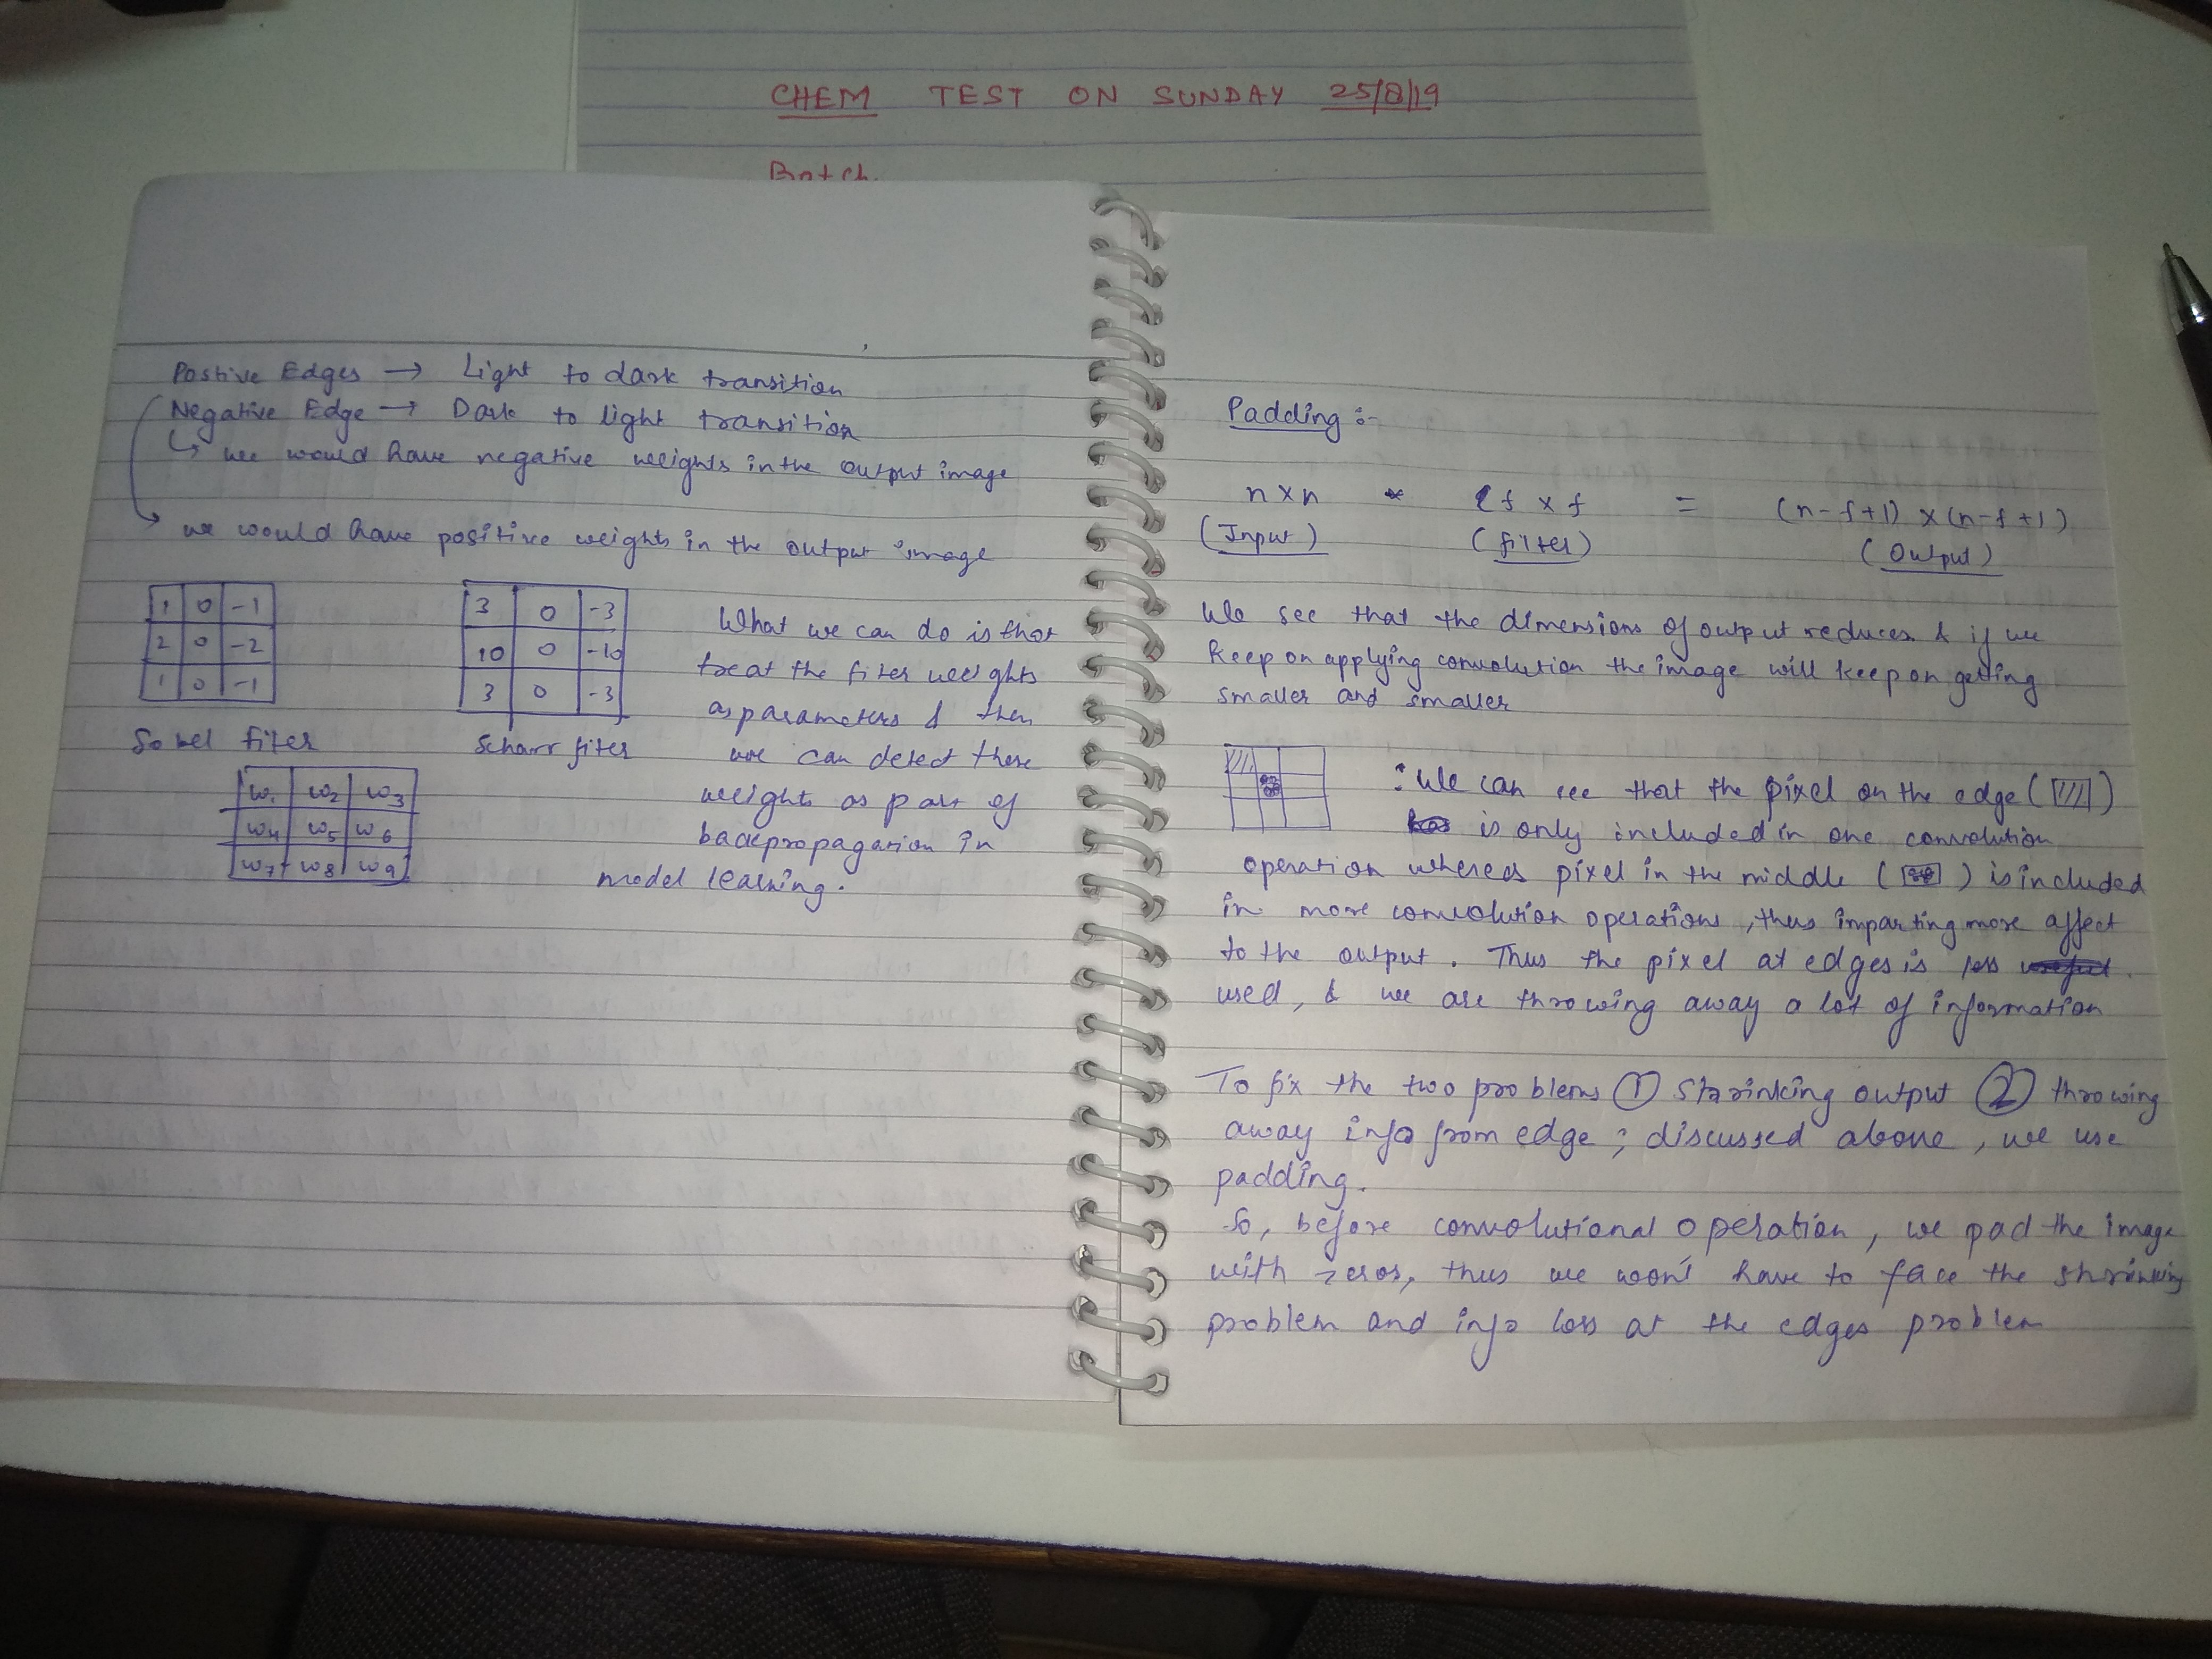 CHEM TEST ON SUNDAY 25/8/19
Batch
Postive Edges → Light to dark transition
Negative Edge → Dark to light transition
↳ we would have negative weights in the output image
we would have positive weights in the output image
1 0 -1
2 0 -2
1 0 -1
Sobel filter
3 0 -3
10 0 -10
3 0 -3
Scharr filter
What we can do is that
treat the filter weights
as parameters & then
we can detect these
weights as part of
backpropagation in
model learning.
w1 w2 w3
w4 w5 w6
w7 w8 w9
Padding :-
n x n * f x f = (n-f+1) x (n-f+1)
(Input) (filter) (Output)
We see that the dimensions of output reduces & if we
keep on applying convolution the image will keep on getting
smaller and smaller
: We can see that the pixel on the edge ( )
is only included in one convolution
operation whereas pixel in the middle ( ) is included
in more convolution operations, thus imparting more affect
to the output. Thus the pixel at edges is less
used, & we are throwing away a lot of information
To fix the two problems ① Shrinking output ② throwing
away info from edge; discussed above, we use
padding.
So, before convolutional operation, we pad the image
with zeros, thus we won't have to face the shrinking
problem and info loss at the edges problem